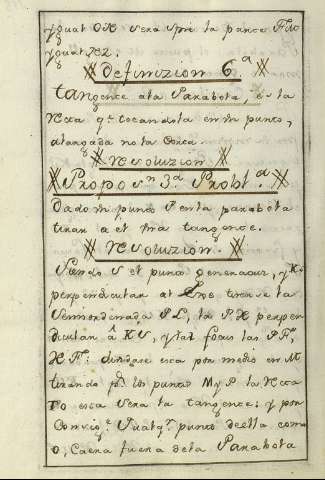 ygual OR sera spre la parte
ygual
Definizion 6.ª
tangente ala Parabola, es la
recta q.e tocandola en un punto,
alargada no la corta.
Resoluzion
Propos.n 3.ª Probl.ª
Dado un punto P en la parabola
tirar a el una tangente.
Resoluzion.
Siendo S el punto generador, y
perpendicular al Exe. tirese la
Semiordenada PL, la PK perpen
dicular â KS, y tal focus las PF,
KF: dividase esta por medio en M
tirando p.r los puntos M y P la recta
TO essa sera la tangente: y por
qualq.r punto de ella como
O, Caera fuera dela Parabola